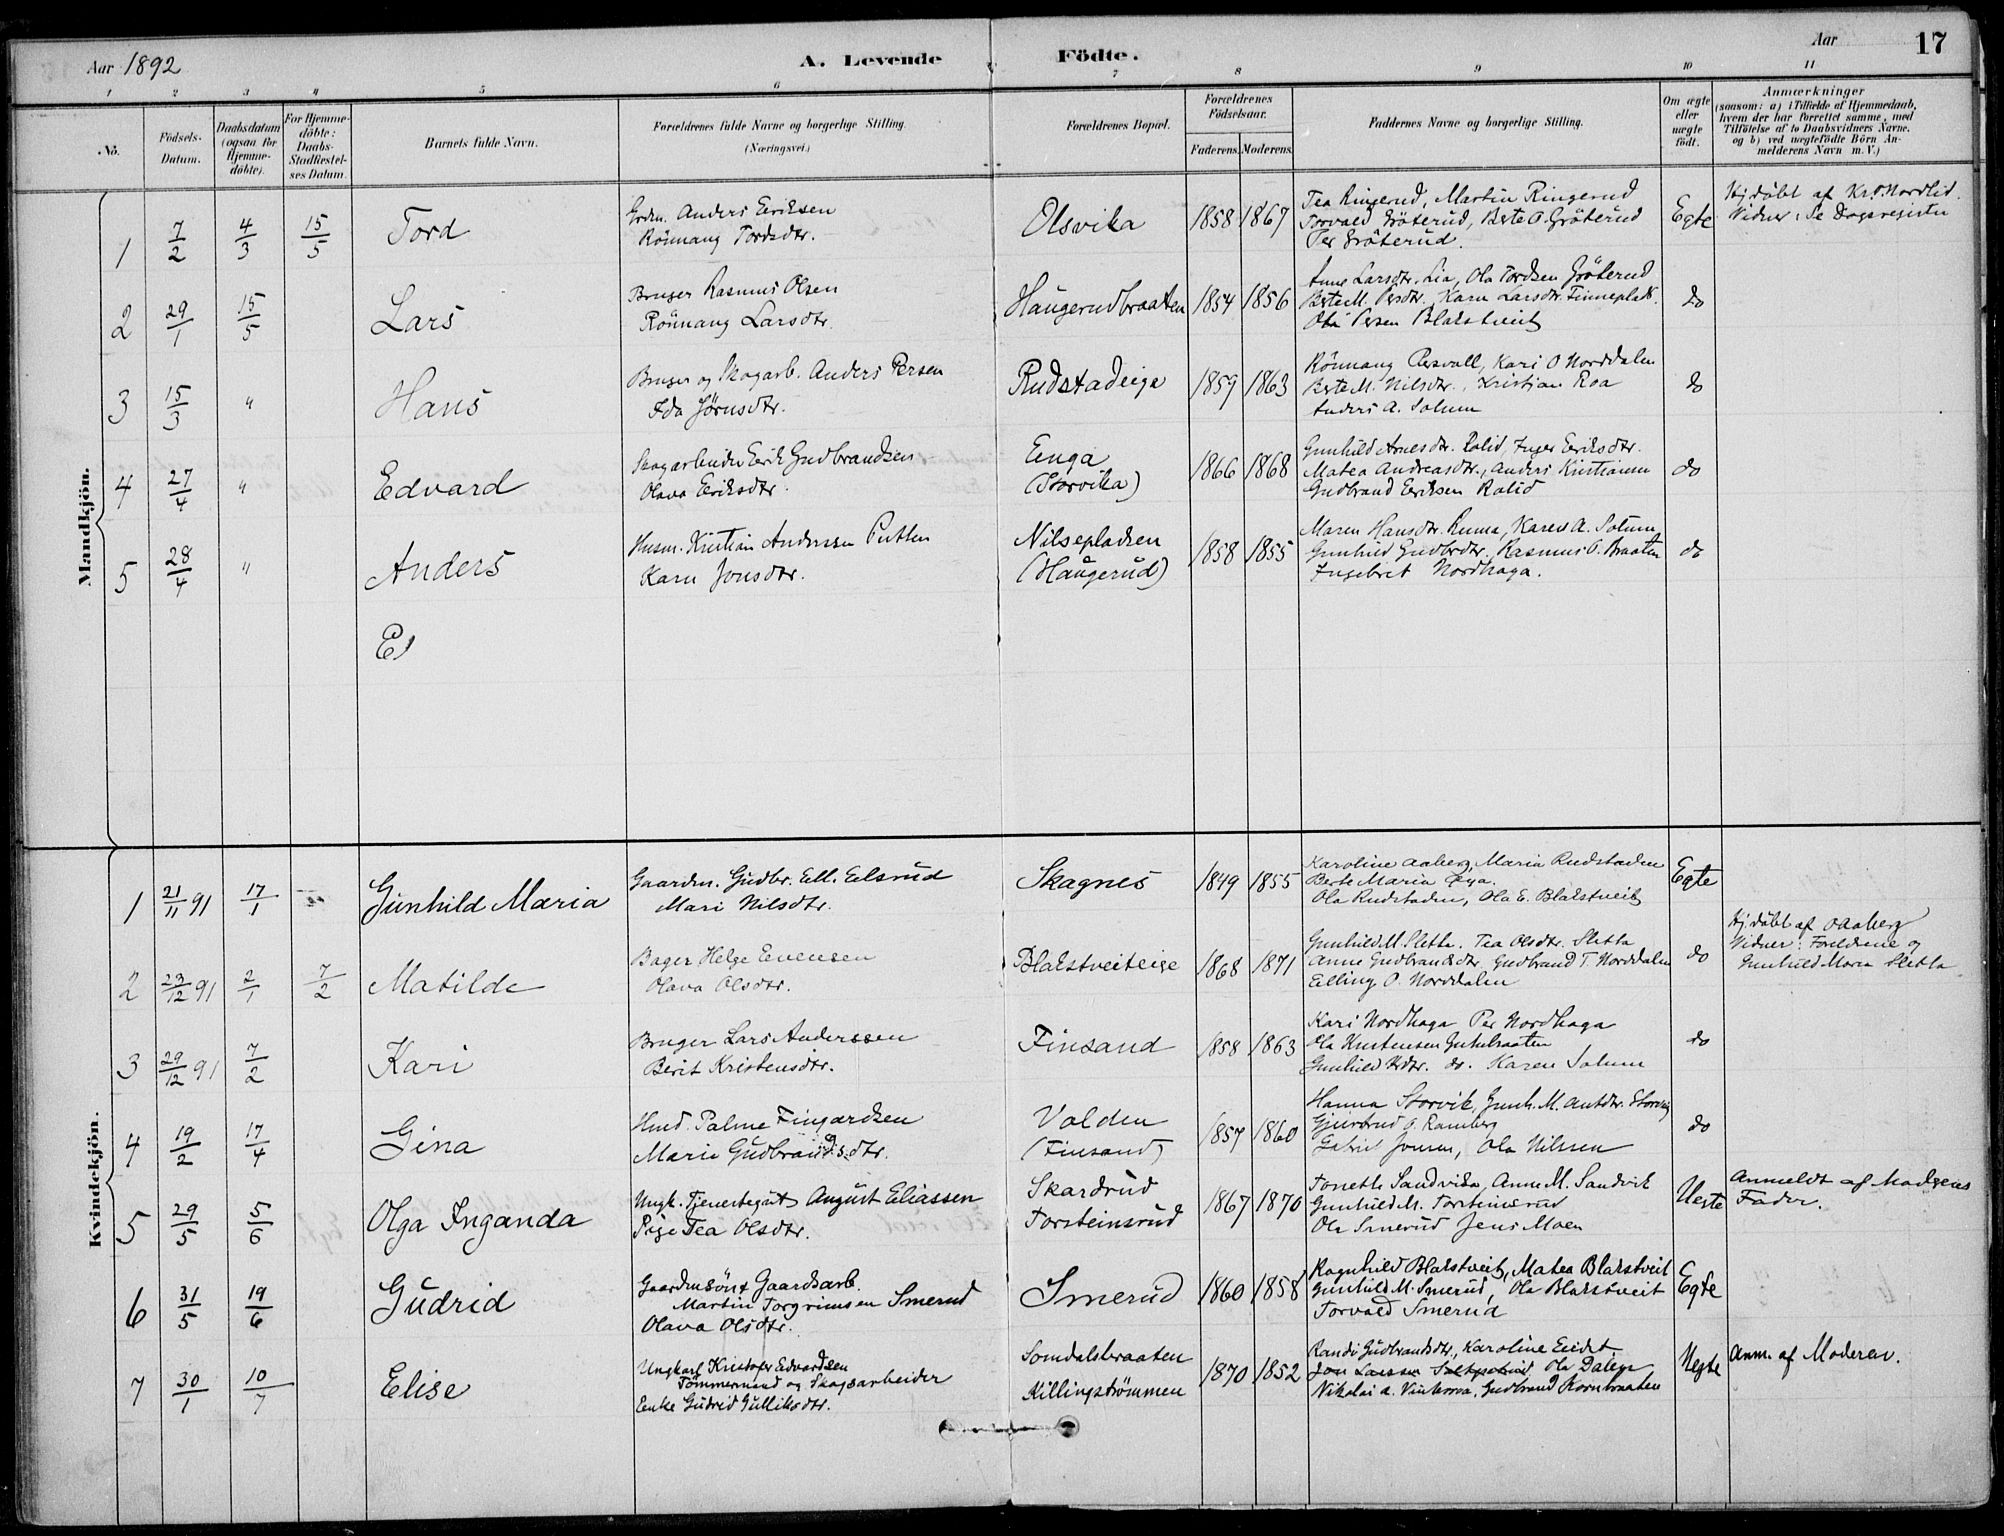 Aar 1892
A. Levende Födte.
Aar
17
1 2 3 4 5 6 7 8 9 10 11
No.
Födsels-Datum.
Daabsdatum (ogsaa for Hjemmedöbte).
For Hjemmedöbte: Daabs-Stadfæstelses Datum.
Barnets fulde Navn.
Forældrenes fulde Navne og borgerlige Stilling.
(Næringsvei.)
Forældrenes Bopæl.
Forældrenes Födselsaar.
Faderens. Moderens.
Faddernes Navne og borgerlige Stilling.
Om ægte eller uægte födt.
Anmærkninger
(saasom: a) i Tilfælde af Hjemmedaab,
hvem der har forrettet samme, med
Tilföielse af to Daabsvidners Navne.
og b) ved uægtefödte Börn Anmelderens Navn m. V.)
Mandkjön.
1 7/2 4/3 15/5 Tord
Grdm. Anders Eeriksen
Rönnang Tordsdtr.
Olsvika 1858 1867
Tea Ringerud, Martin Ringerud
Torvald Gröterud, Berte O. Gröterud
Per Gröterud.
Egte
Hj.döbt af Kr. Nordlid.
Vidner: Se Dagsregister
2 29/1 15/5 Lars
Bruger Rasmus Olsen
Rönnang Larsdtr.
Haugerudbraaten 1854 1856
Anne Larsdtr. Lia, Ola Tordsen Gröterud
Berte M. Persdtr., Karn Larsdtr. Finneplads.
Ola Persen Blakstveit
do
3 15/3 " Hans
Bruger og Skogarb. Anders Persen
Ida Jörnsdtr.
Rudstadeige 1859 1863
Rönnang Persvoll, Kari O Norddalen
Berte M. Nilsdtr., Kristian Roa
Anders A. Solum
do
4 27/4 " Edvard
Skogarbeider Eerik Gudbrandsen
Olava Eeriksdtr.
Enga
(Storvika)
1866 1868
Gunhild Arnesdtr. Rolid, Inger Eeriksdtr.
Matea Andreasdtr., Anders Kristiansen
Gudbrand Eeriksen Rolid
do
5 28/4 " Anders
Husm. Kristian Anderssen Putten
Karn Jonsdtr.
Nilsepladsen
(Haugerud)
1858 1855
Maren Hansdtr. Ruma, Karen A. Solum
Gunhild Gudbrdtr. Rasmus O. Braaten
Ingebret Nordhaga.
do
Kvindekjön.
1 21/11 91 17/1 Gunhild Maria
Gaardm. Gudbr. Ell. Eelsrud
Mari Nilsdtr.
Skagnes 1849 1855
Karoline Aaberg, Maria Rudstaden
Berte Maria Øya.
Ola Rudstaden, Ola E. Blakstveit
Egte
2 23/12 91 2/1 7/2 Matilde
Bager Helge Evensen
Olava Olsdtr.
Blakstveiteige 1868 1871
Gunhild M. Sletta. Tea Olsdtr. Sletta
Anne Gudbrandsdtr. Gudbrand T. Norddalen
Eelling O. Norddalen
do
Hj.döbt af O Aaberg
Vidner: Foreldrene og
Gunhild Maria Sletta
3 29/12 91 7/2 Kari
Bruger Lars Anderssen
Berit Kristensdtr.
Finsand 1858 1863
Kari Nordhaga Per Nordhaga
Ola Kristensen
Gunhild Krdtr. do. Karen Solum
do
4 19/2 17/4 Gina
Hmd. Palme Fingardsen
Marie Gudbrandsdtr.
Volden
(Finsand)
1857 1860
Hanna Storvik, Gunh. M. Antdtr. Storvik
Gjertrud O. Ramberg
Gabriel Jonsen, Ola Nilssen
do
5 29/5 5/6 Olga Inganda
Ungk. Tjenestegut August Eliassen
Pige Tea Olsdtr.
Skardrud
Torsteinsrud
1867 1870
Toneth Sandvika, Anne M. Sandvik
Gunhild M. Torsteinsrud
Ola Smerud Jens Moen
Uegte
Anmeldt af Modrens
Fader.
6 31/5 19/6 Gudrid
Gaardmsön & Gaardsarb.
Martin Torgrimsen Smerud
Olava Olsdtr.
Smerud 1860 1858
Ragnhild Blakstveit, Matea Blakstveit
Gunhild M. Smerud, Ola Blakstveit
Torvald Smerud
Egte
7 30/1 10/7 Elise
Ungkarl Kristofer Edvardsen
Tömmermand og Skogsarbeider
Enke Gudrid Gulliksdtr.
Somdalsbraaten
Killingströmmen
1870 1852
Randi Gudbrandsdtr., Karoline Eidet
Jon Larssen Ola Dalen
Nikolai A. Gudbrand Kornbraaten
Uegte
Anm. af Moderen.